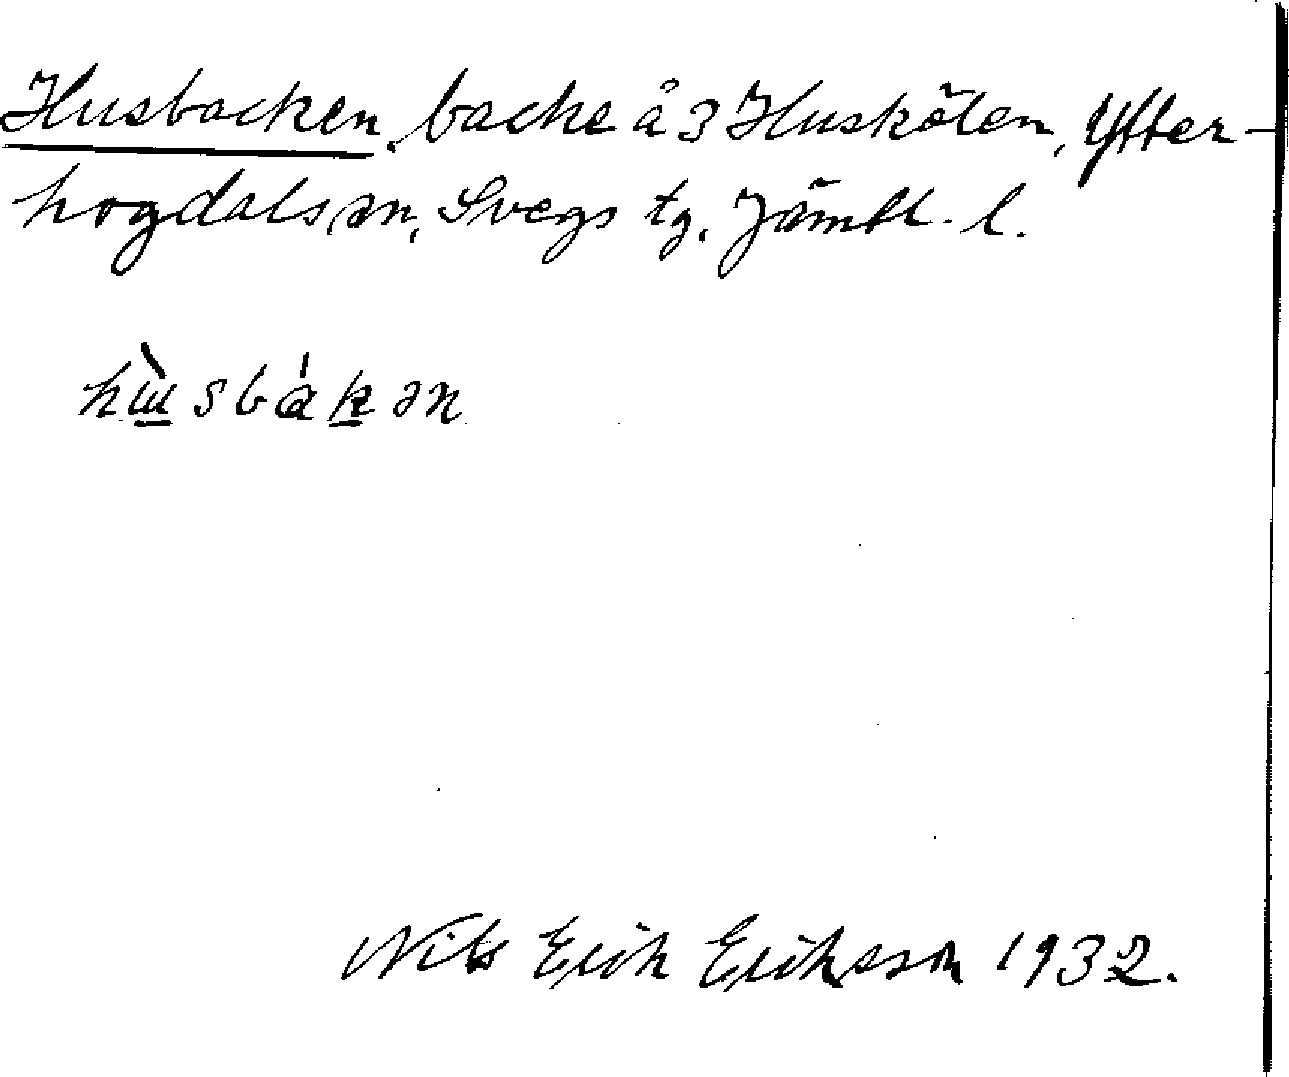 Husbacken, backe å 3 Huskölen, Ytter-
hogdals sn, Svegs tg. Jämtl. l.
hɯ̀sbákən
Nils Erik Eriksson 1932.